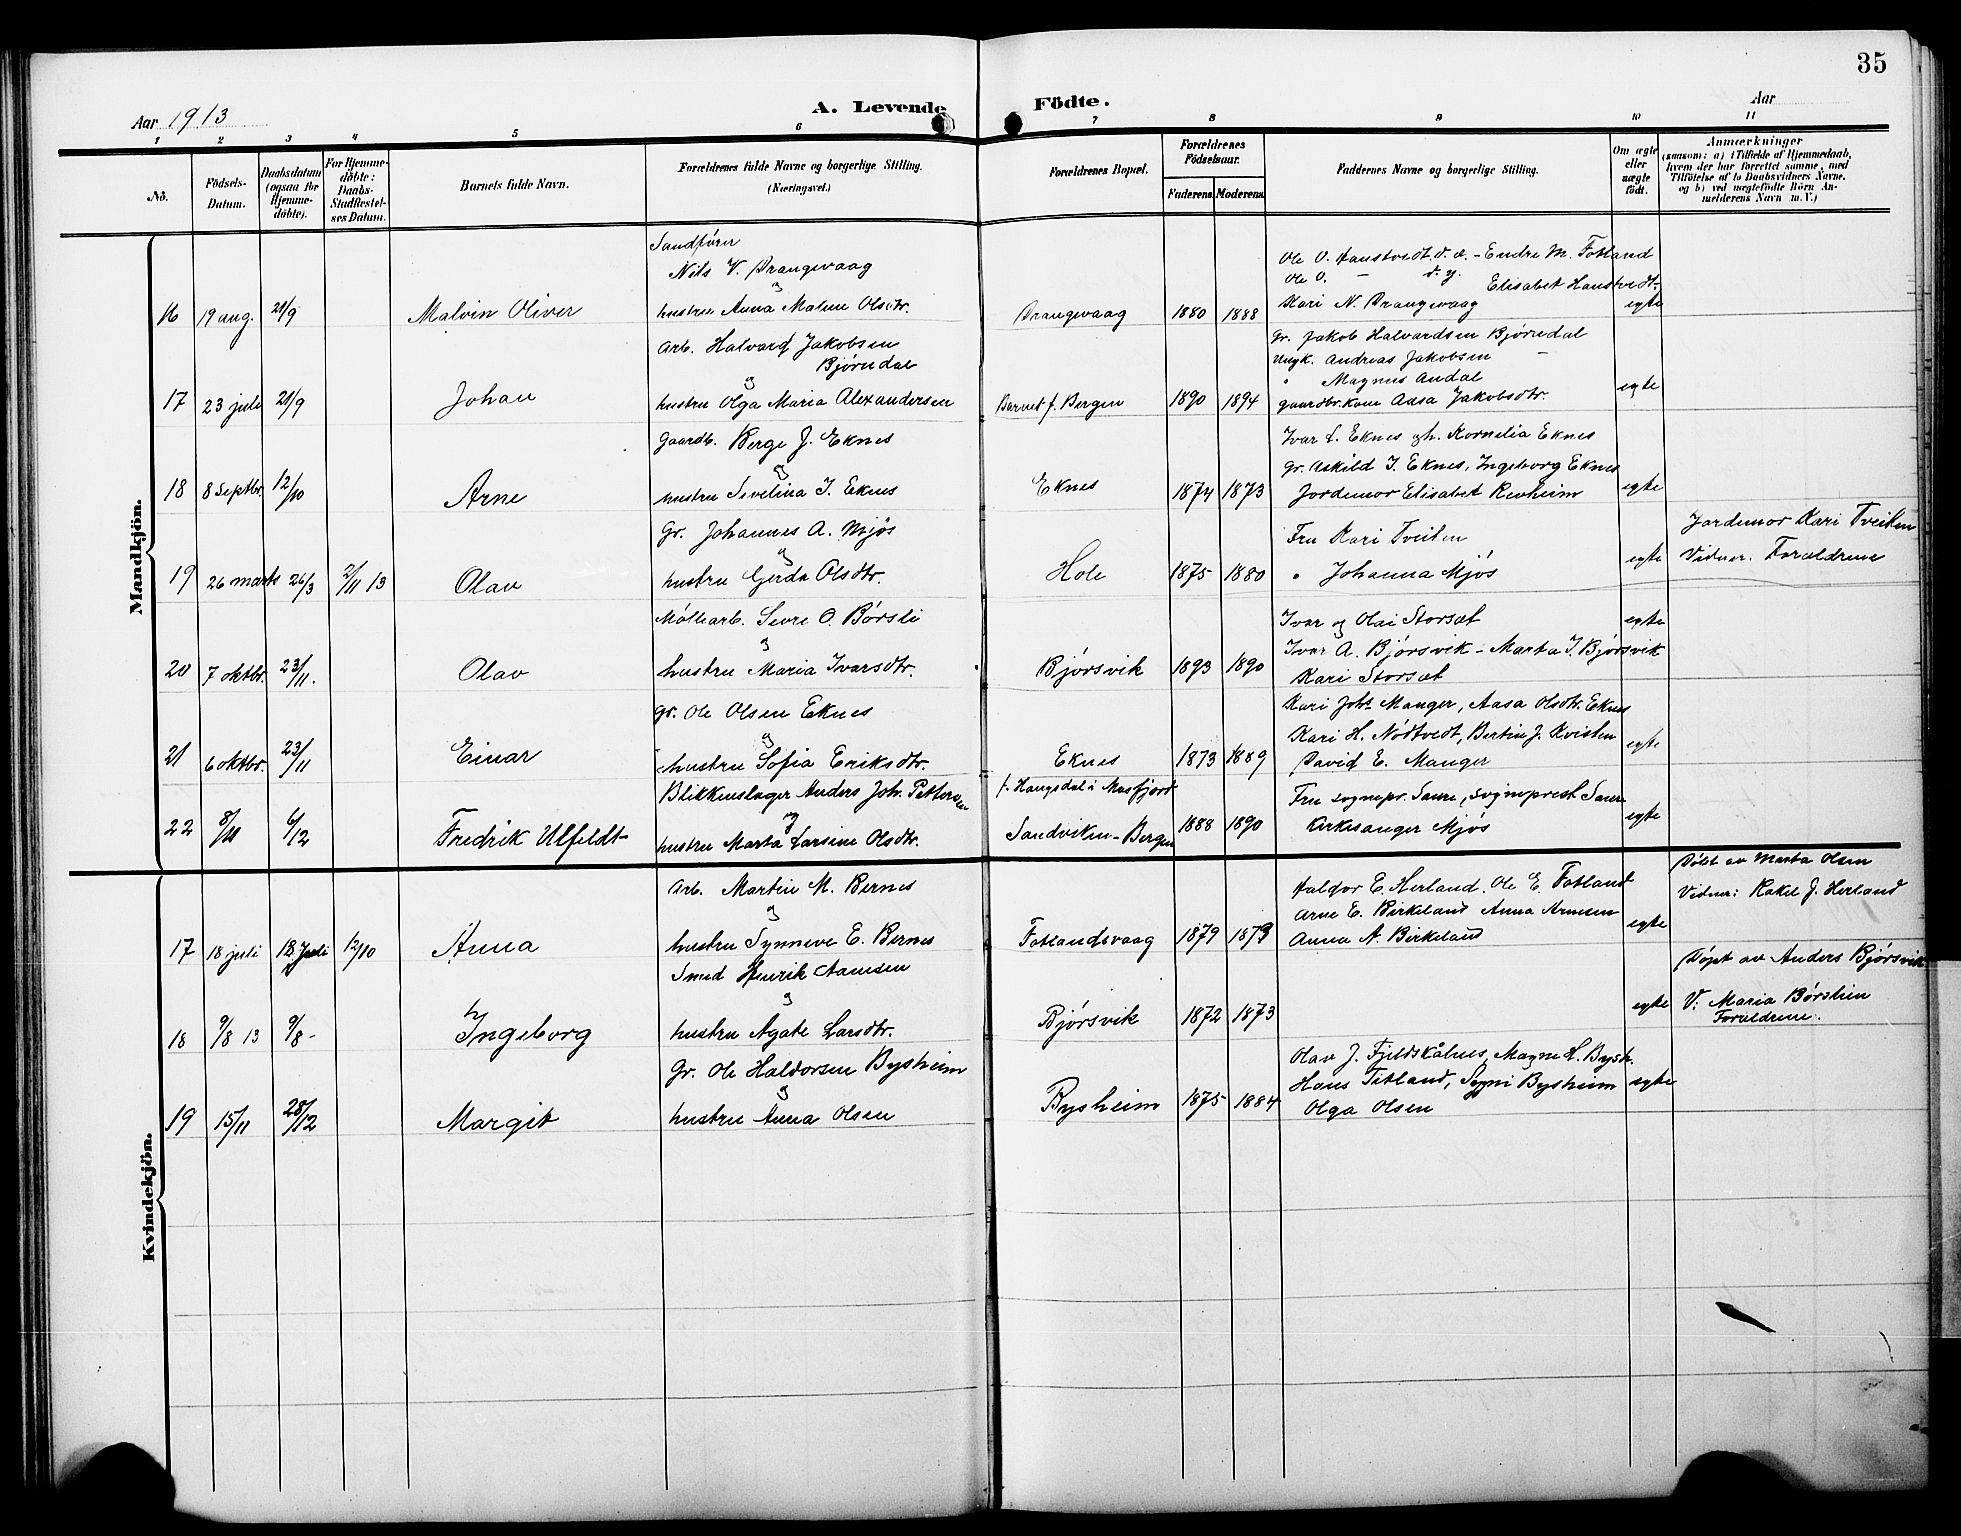 35
Aar 1913
A. Levende Födte.
Aar
1 2 3 4 5 6 7 8 9 10 11
No.
Födsels-Datum.
Daabsdatum (ogsaa for Hjemme-döbte).
For Hjemme-döbte: Daabs-Stadfæstel-ses Datum.
Barnets fulde Navn.
Forældrenes fulde Navne og borgerlige Stilling. (Næringsvei.)
Forældrenes Bopæl.
Forældrenes Födselsaar.
Faderens Moderens
Faddernes Navne og borgerlige Stilling.
Om ægte eller uægte födt.
Anmærkninger
(saasom: a) i Tilfælde af Hjemmedaab,
hvem der har forrettet samme, med
Tilföielse af to Daabsvidners Navne.
og b) ved uægtefödte Börn An-
melderens Navn m. V.)
Mandkjön.
Sandfører
Nils V. Drangevaag
og
16 19 aug. 21/9 Malvin Oliver hustru Anna Malene Olsdtr. Drangevaag 1880 1888
Ole O. Haustvedt d. æ. - Endre M. Fotland
Ole O. - d. y. Elisabet Haustvedt
Kari N. Drangevaag egte
Arb. Halvard Jakobsen
Bjørndal
og
17 23 juli 21/9 Johan hustru Olga Maria Alexandersen Barnet f. Bergen 1890 1894
Gr. Jakob Halvardsen Bjørndal
Ungk. Andreas Jakobsen -
" Magnus Andal
gaardbr.kone Aasa Jakobsdtr. egte
Gaardb. Berge J. Eknes
og
18 8 Septbr. 12/10 Arne hustru Sivelina I. Eknes Eknes 1874 1873
Ivar S. Eknes og h. Kornelia Eknes
Gr. Askild I. Eknes, Ingeborg Eknes
Jordemor Elisabet Revheim egte
Gr. Johannes A. Mjøs
og
19 26 marts 26/3 2/11 13 Olav hustru Gerda Olsdtr. Hole 1875 1880
Fru Kari Tveiten
" Johanna Mjøs egte
Jordemor Kari Tveiten
Vidner: Forældrene
Møllearb. Sevre O. Børsli
og
20 7 oktbr. 23/11. Olav hustru Maria Ivarsdtr. Bjørsvik 1893 1890
Ivar og Olai Storsæt egte
Ivar A. Bjørsvik - Marta I. Bjørsvik
Kari Storsæt
Gr. Ole Olsen Eknes
og
21 6 oktbr. 23/11 Einar hustru Sofia Eriksdtr. Eknes 1873 1889
Kari Johs Manger, Aasa Olsdtr. Eknes
Kari H. Nødtvedt, Bertin J. Kvisten
David E. Manger egte
Blikkenslager Anders Joh. Pettersen
og
22 8/11 6/12 Fredrik Ulfeldt hustru Marta Larsine Olsdtr.
f. Haugsdal i Masfjord
Sandviken - Bergen 1888 1890
Fru sognepr. Saure, sogneprest Saure
Kirkesanger Mjøs egte
Kvindekjön.
Arb. Martin M. Bernes
og
17 18 juli 18 Juli 12/10 Anna hustru Synneve E. Bernes Fotlandsvaag 1879 1873
Haldor E. Herland. Ole E. Fotland
Arne E. Birkeland Anna Arnesen
Anna A. Birkeland egte
Døbt av Marta Olsen
Vidner: Rakel J. Herland
Smed Henrik Aamesen
og
18 9/8 13 9/8 - Ingeborg hustru Agate Larsdtr. Bjørsvik 1872 1873 egte
Døpt av Anders Bjørsvik
V: Maria Børslien
Forældrene.
Gr. Ole Haldorsen Bysheim
og
19 15/11 28/12 Margit hustru Anna Olsen Bysheim 1875 1884
Olav J. Fjeldskålnes, Magne H. Bysh.
Hans Titland, Sygni Bysheim
Olga Olsen egte